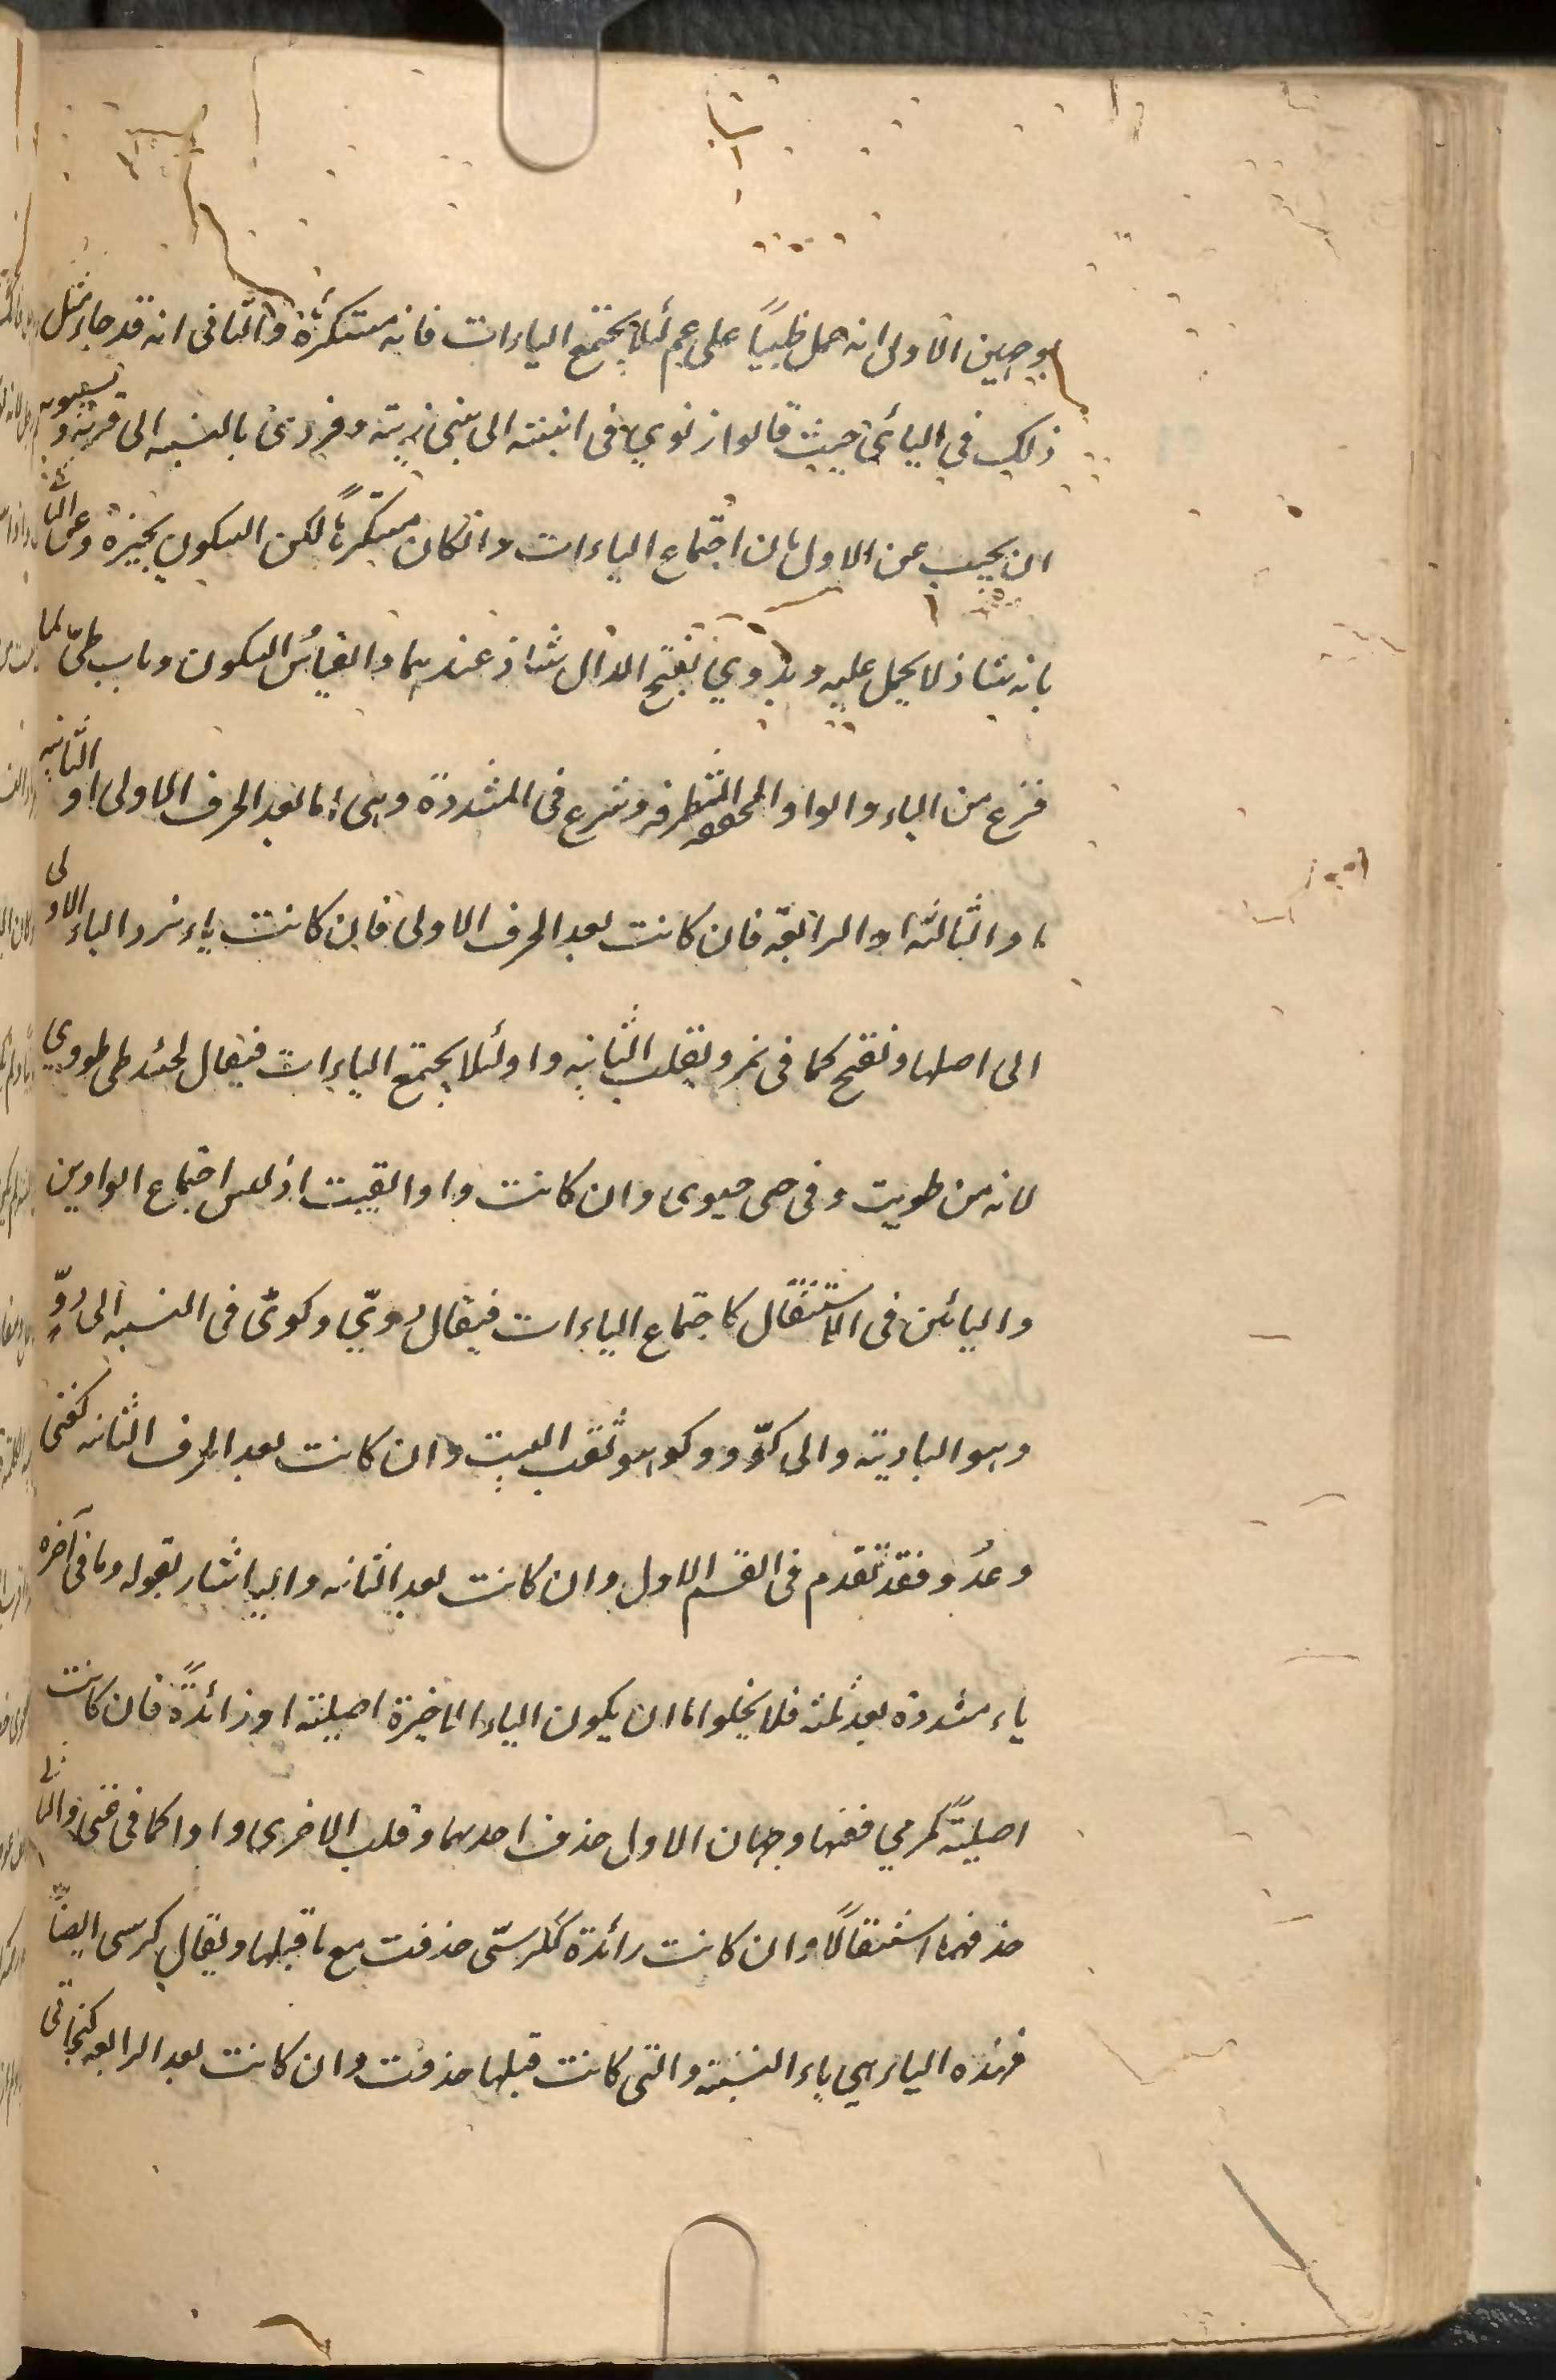 بوجهين الاولى انه حمل ظبيًا على عم لئلا يجتمع الياءات فانه مستكرثة والثانى انه قد جاء مثل
ذلك في اليائى حيث قالوا زنوي فى النسبة الى بنى زنية وقروى بالنسبه الى قرية وسيبويه
ان يجيب عن الاول بان اجتماع الياءات وانكان مستكرهًا لكن السكون يجيزه وعن الثا نے
بانه شاذ لا يحمل عليه وبدوي بفتح الدال شاذ عندهما والقياس السكون وباب طىّ لما
فرغ من الياء والواو المخففه المتطرفه وشرع فى المشددة وهى اما بعد الحرف الاولى او الثانيه
او الثالثه او الرابعة فان كانت بعد الحرف الاولى فان كانت ياء نرد الياء الاولى
الى اصلها ونفتح كما فى نمر ويقلب الثانيه واو لئلا يجتمع الياءات فيقال لحينئذ طى طووي
لانه من طويت وفى حى حيوى وان كانت واو ابقيت اذ ليس اجتماع الواوين
واليائين فى الاستثقال كاجتماع الياءات فيقال دويّ وكوىّ فى النسبه الى دوّ
وهو الباديته والى كوّ وهو ثقب البيت وان كانت بعد الحرف الثانيه كغنى
وعدُو فقد تقدم فى القسم الاول وان كانت بعد الثانيه واليه اشار بقوله وما فى آخره
ياء مشدده بعد ثلثه فلا يخلوا اما ان يكون الياء الاخيرة اصلية او زائدةً فان كانت
اصليةً كمرمي ففيها وجهان الاول حذف احدهما وقلب الاخرى واوا كما فى غنى والثا نے
حذفهما استثقالًا وان كانت زائدة ككرسىّ حذفت مع ما قبلها ويقال كرسى ايضًا
فهذه الياء هي ياء النسبة والتى كانت قبلها حذفت وان كانت بعد الرابعه كبخاتى